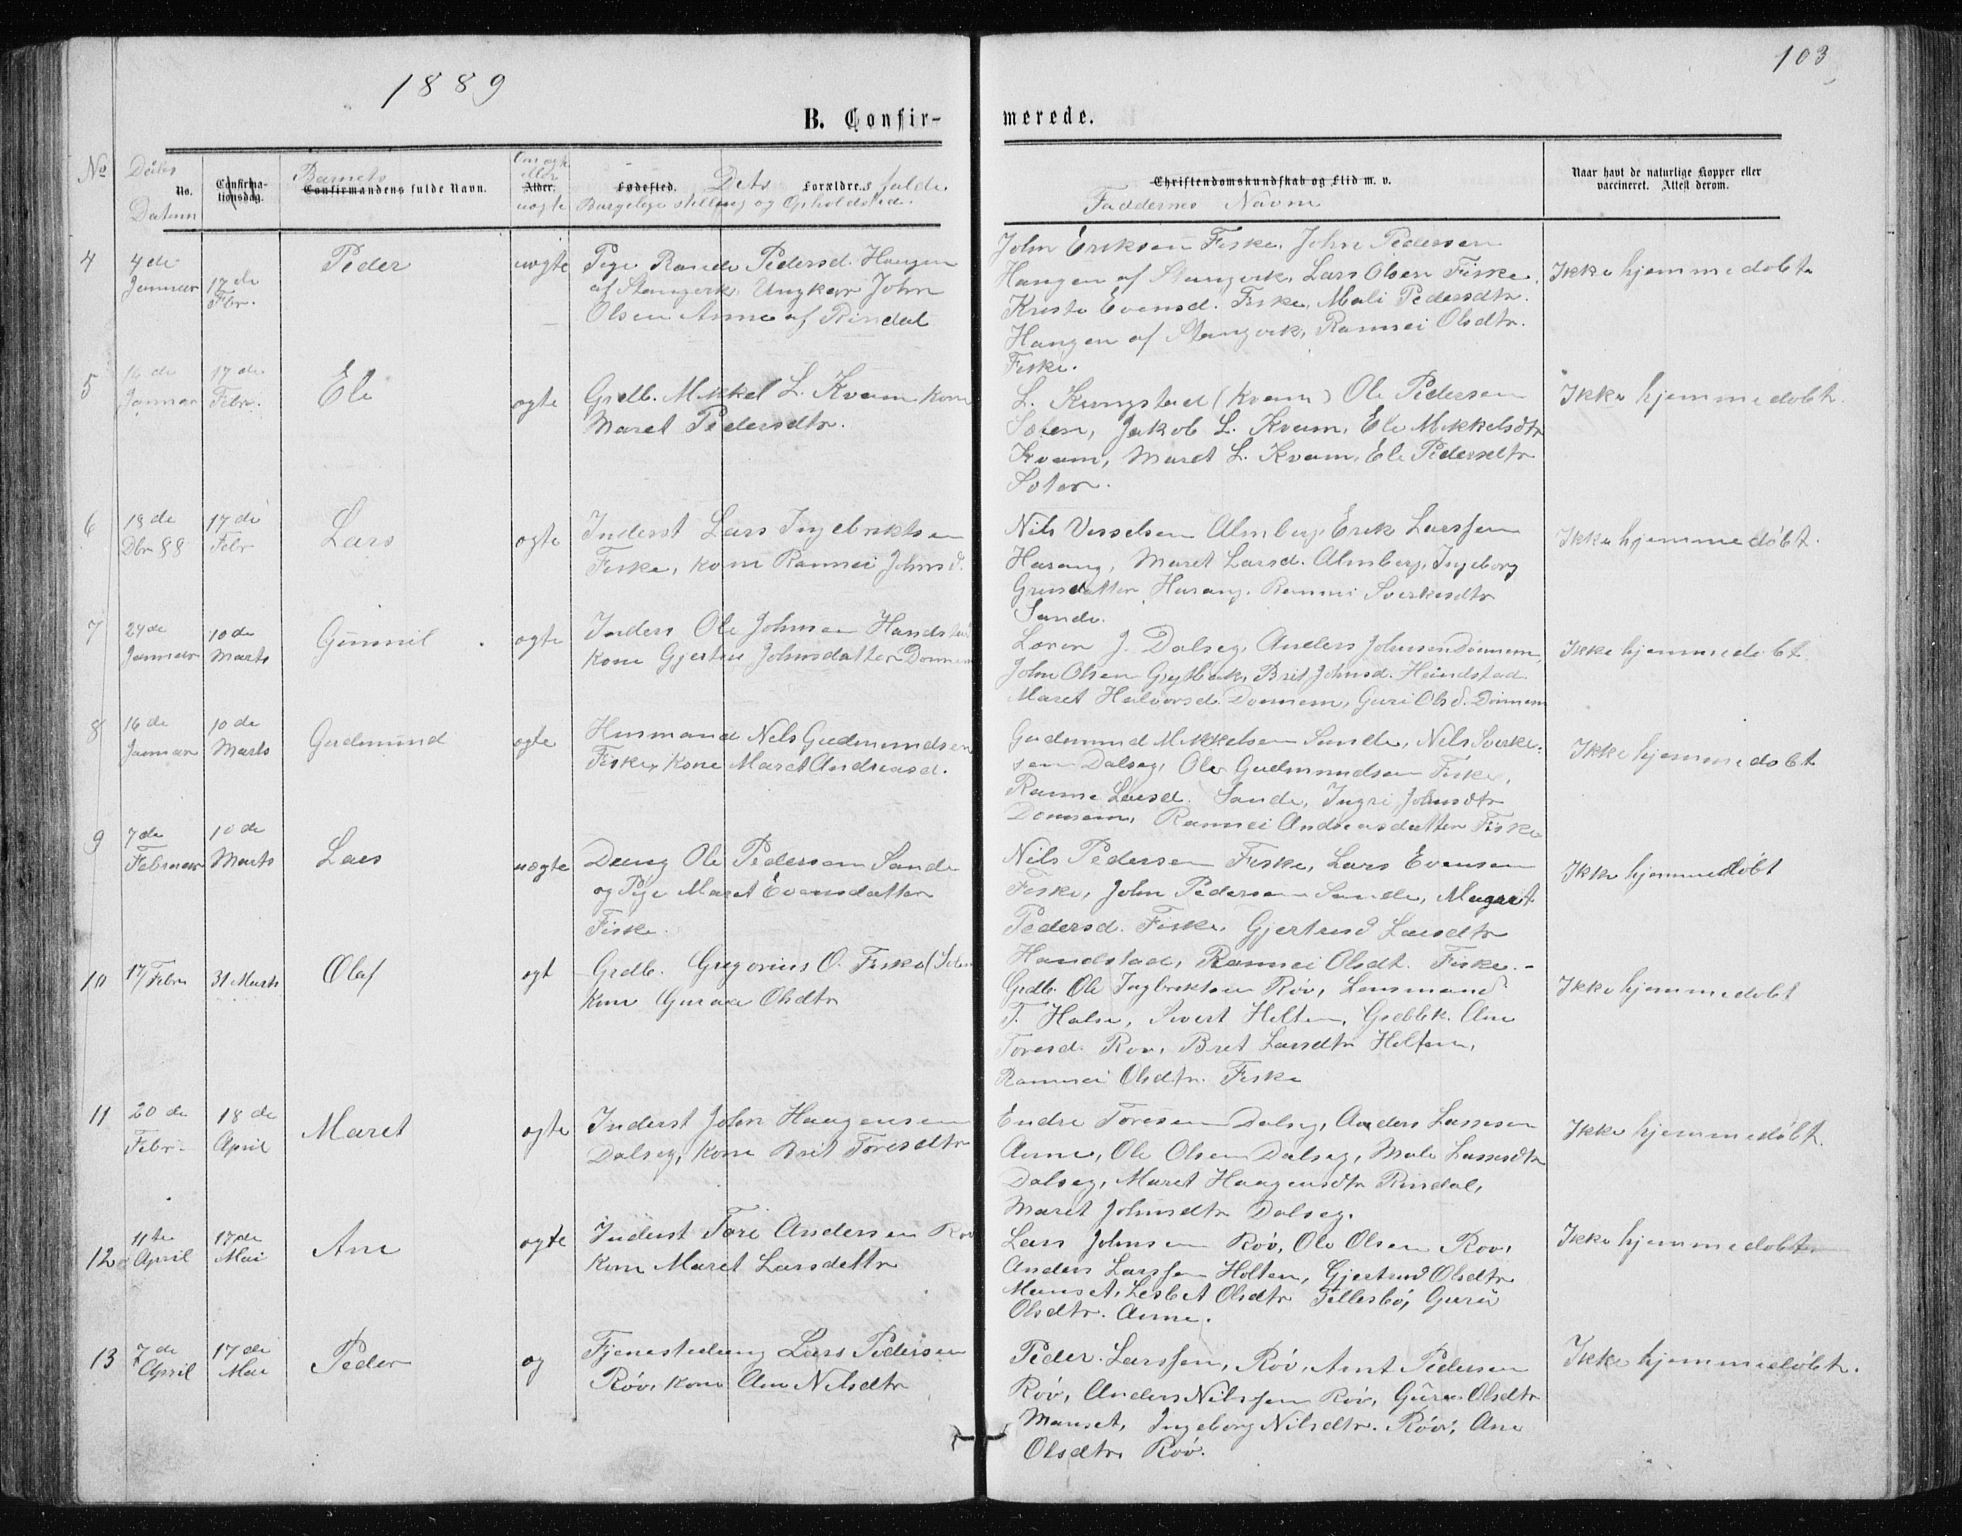 1889
103
B. Confir-
merede.
No
Døbes
Datum
No.
Confirma-
tionsdag.
Barnets
Confirmandens fulde Navn.
Om ægte
eller
Alder.
uægte
Fødested. Dets Forældres fulde
Borgelige stilling og Opholdsted.
Christendomskundskab og Flid m. v.
Faddernes Navne
Naar havt de naturlige Kopper eller
vaccineret. Attest derom.
4
4de
Januar
17de
Febr.
Peder
uægte
Pige Rande Pedersd. Haugen
af Stangvik. Ungkar John
Olsen Aune af Rindal
John Eriksen Fiske, John Pedersen
Haugen af Stangvik, Lars Olsen Fiske.
Kristi Evensd. Fiske, Mali Pedersdtr.
Haugen af Stangvik, Rannei Olsdtr.
Fiske.
Ikke hjemmedøbt
5
16de
Januar
17de
Febr.
Eli
ægte
Grdb. Mikkel L. Kvam kone
Maret Pedersdtr.
L. Kungstad (Kvam) Ole Pedersen
Soten, Jakob L. Kvam, Eli Mikkelsdtr
Kvam, Maret L. Kvam, Eli Pedersdtr
Soten.
Ikke hjemmedøbt.
6
18de
Dbr 88
17de
Febr
Lars
ægte
Inderst Lars Ingebriktsen
Fiske, kone Rannei Johnsd.
Nils Vesselsen Almberg, Erik Larssen
Harang, Maret Larsd. Almberg, Ingeborg
Harang. Rannei Sverkesdtr
Sande.
Ikke hjemmedøbt.
7
24de
Januar
10de
Marts
Gunnil
ægte
Inders Ole Johnsen Handstad
kone Gjertru Johnsdatter Donnem
J. Dalseg, Anders Johnsen Donnem,
John Olsen Grytbak, Brit Johnsd. Handstad
Maret Halvorsd. Donnem, Guri Olsd. Donnem
Ikke hjemmedøbt
8
16de
Januar
10de
Marts
Gudmund
ægte
Husmand Nels Gudmundsen
Fiske, Kone Maret Andreasd.
Gudmund Mikkelsen Sande, Nils Sverke-
sen Dalseg, Ole Gudmundsen Fiske,
Ranne Larsd. Sande, Ingri Johnsdtr
Donnem, Rannei Andreasdatter Fiske
Ikke hjemmedøbt
9
7de
Februar
10de
Marts
Lars
uægte
Dreng Ole Pedersen Sande
og Pige Maret Evensdatter
Fiske.
Nils Pedersen Fiske, Lars Evensen
Fiske, John Pedersen Sande, Magrit
Pedersd. Fiske, Gjertrud Larsdtr
Handstad, Rannei Olsdt. Fiske.
Ikke hjemmedøbt
10
17 Febr
31 Marts
Olaf
ægt
Grdb. Gregorius O. Fiske (Soten
kone Guraa Olsdtr
Grdb. Ole Ingbriktsen Røv, Lensmand
T. Halse, Sivert Holten, Grdbk. Ane
Toresd. Røv, Bret Larsdtr Holten,
Rannei Olsdtr. Fiske
Ikke hjemmedøbt
11
20de
Febr.
18de
April
Maret
ægte
Inderst John Haagensen
Dalseg, kone Brit Toresdtr
Endre Toresen Dalseg, Anders Larssen
Aune, Ole Olsen Dalseg, Mali Larssdtr
Dalseg, Maret Haagensdtr Rindal,
Maret Johnsdtr Dalseg.
Ikke hjemmedøbt.
12
11te
April
17de
Mai
Ane
ægte
Inderst Tore Andersen Røv
Kone Maret Larsdettr
Lars Johnsen Røv, Ole Olsen Røv,
Anders Larssen Holten, Gjertrud Olsdtr
Manset, Lesbet Olsdtr Tellesbø, Guru
Olsdtr. Aune.
Ikke hjemmedøbt
13
7de
April
17de
Mai
Peder
æg
Tjenestedreng Lars Pedersen
Røv, kone Ane Nilsdtr
Peder Larssen, Røv, Arnt Pedersen
Røv, Anders Nilssen Røv, Guru Olsdtr
Manset, Ingeborg Nilsdtr. Røv, Ane
Olsdtr, Røv.
Ikke hjemmedøbt.